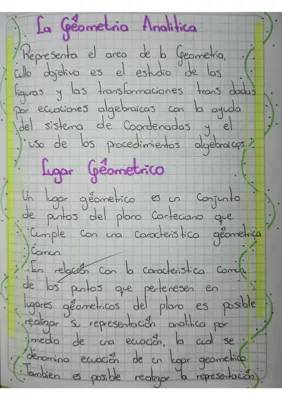 La Geometria Analitica
Representa el area de la Geometria,
Cullo objetivo es el estudio de las
figuras y las transformaciones trans dadas
Por ecuaciones algebraicas con la ayuda
del sistema de Coordenadas y el
uso de los procedimientos algebraicos.
Lugar Geometrico
Un lugar géometrico es un Conjunto
de puntos del plano Cartesiano que
Cumple con una Caracteristica géometrica
Comun.
En relación con la caracteristica Comun
de los puntos que pertenesen en
lugares géometricos del plano es posible
realizar su representación analitica por
medio de una ecuación, la cual se
denomina ecuación de un lugar geometrico
Tambien es posible realizar la representación